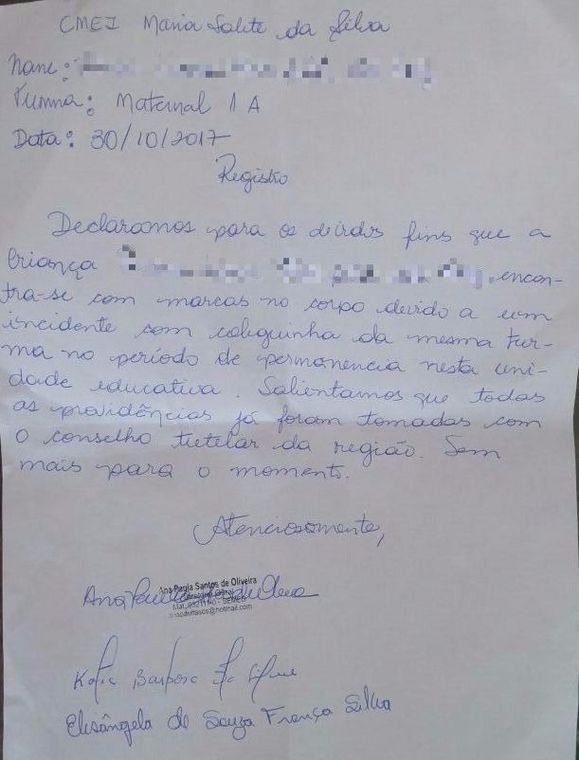 CMEI Maria Salete da Silva
Nome:
Turma: Maternal 1 A
Data: 30/10/2017
Registro
Declaramos para os devidos fins que a
criança encon-
tra-se com marcas no corpo devido a um
incidente com coleguinha da mesma tur-
ma no período de permanencia nesta uni-
dade educativa. Salientamos que todas
as providências já foram tomadas com
o conselho tutelar da região. Sem
mais para o momento.
Atenciosamente,
Ana Paula Santos de Oliveira
Elisângela de Souza França Silva